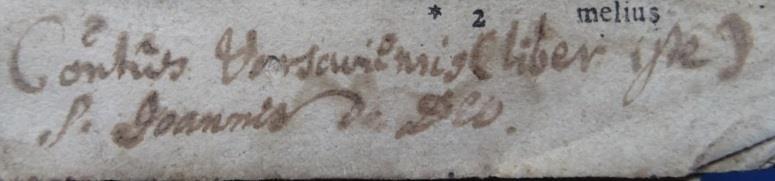 * 2 melius
Cõntûs Varsaviensis (liber iste)
S. Joannis de Deo.